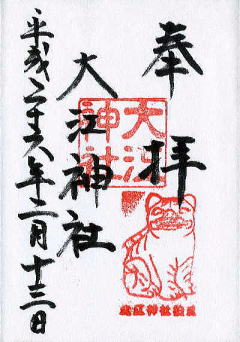 奉拝
大江神社
大江神社
平成二十六年二月十三日
大江神社狛虎